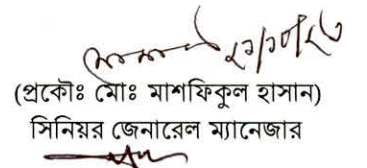 ২১/১০/২৩
(প্রকৌঃ মোঃ মাশফিকুল হাসান)
সিনিয়র জেনারেল ম্যানেজার